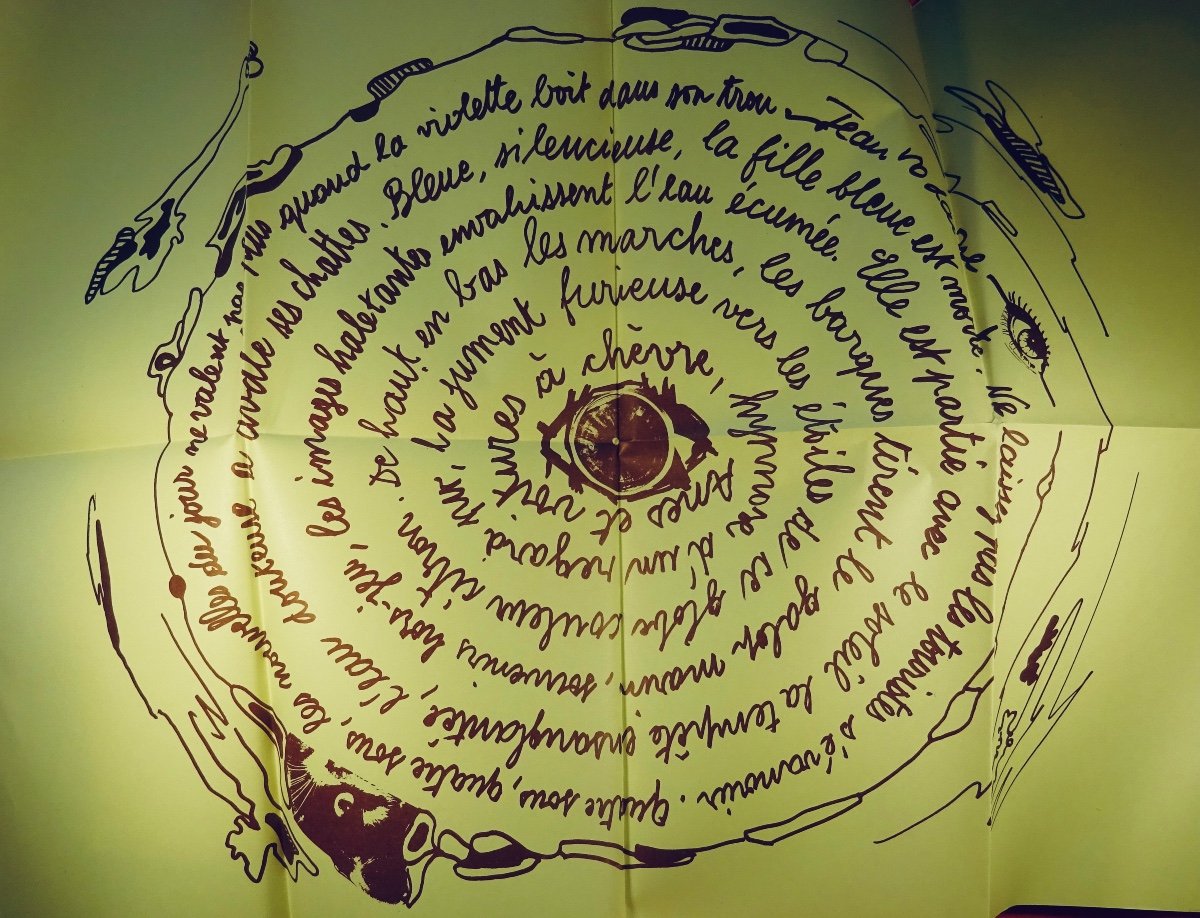 Ames et voitures à chèvre,
d'un regard pur, La jument furieuse vers les étoiles de ce globe couleur citron.
De haut en bas les marches, les barques tirent le galop marin, souvenirs hors-jeu,
les images haletantes envahissent l'eau écumée. Elle est partie avec le soleil la tempête ensanglantée, l'eau
a avalé ses chattes. Bleue, silencieuse, la fille bleue est morte. Ne laissez pas les touristes s'évanouir.
quatre sous, quatre sous, les nouvelles du jour ne valent pas plus quand la violette boit dans son trou
Jean